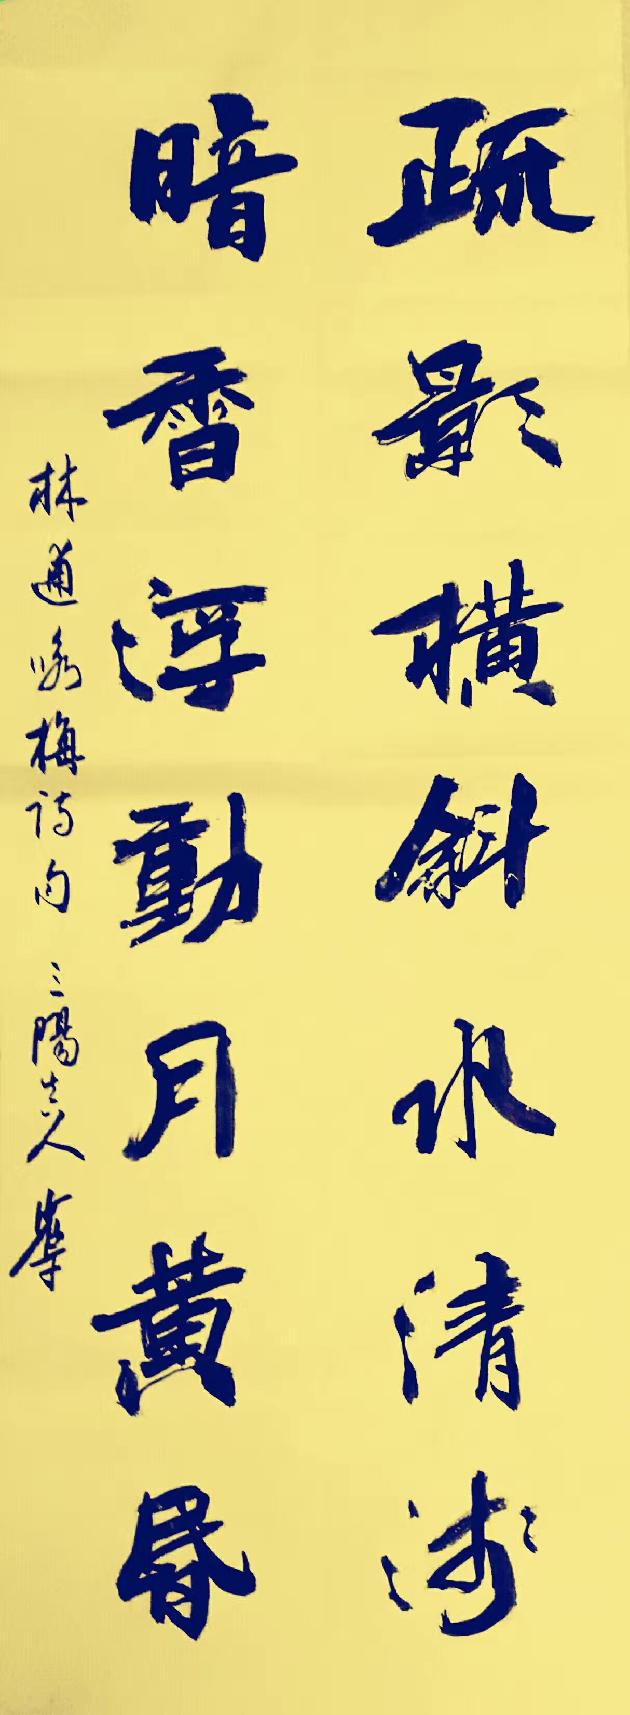 疏影橫斜水清淺
暗香浮動月黃昏
林逋咏梅詩句 三陽山人